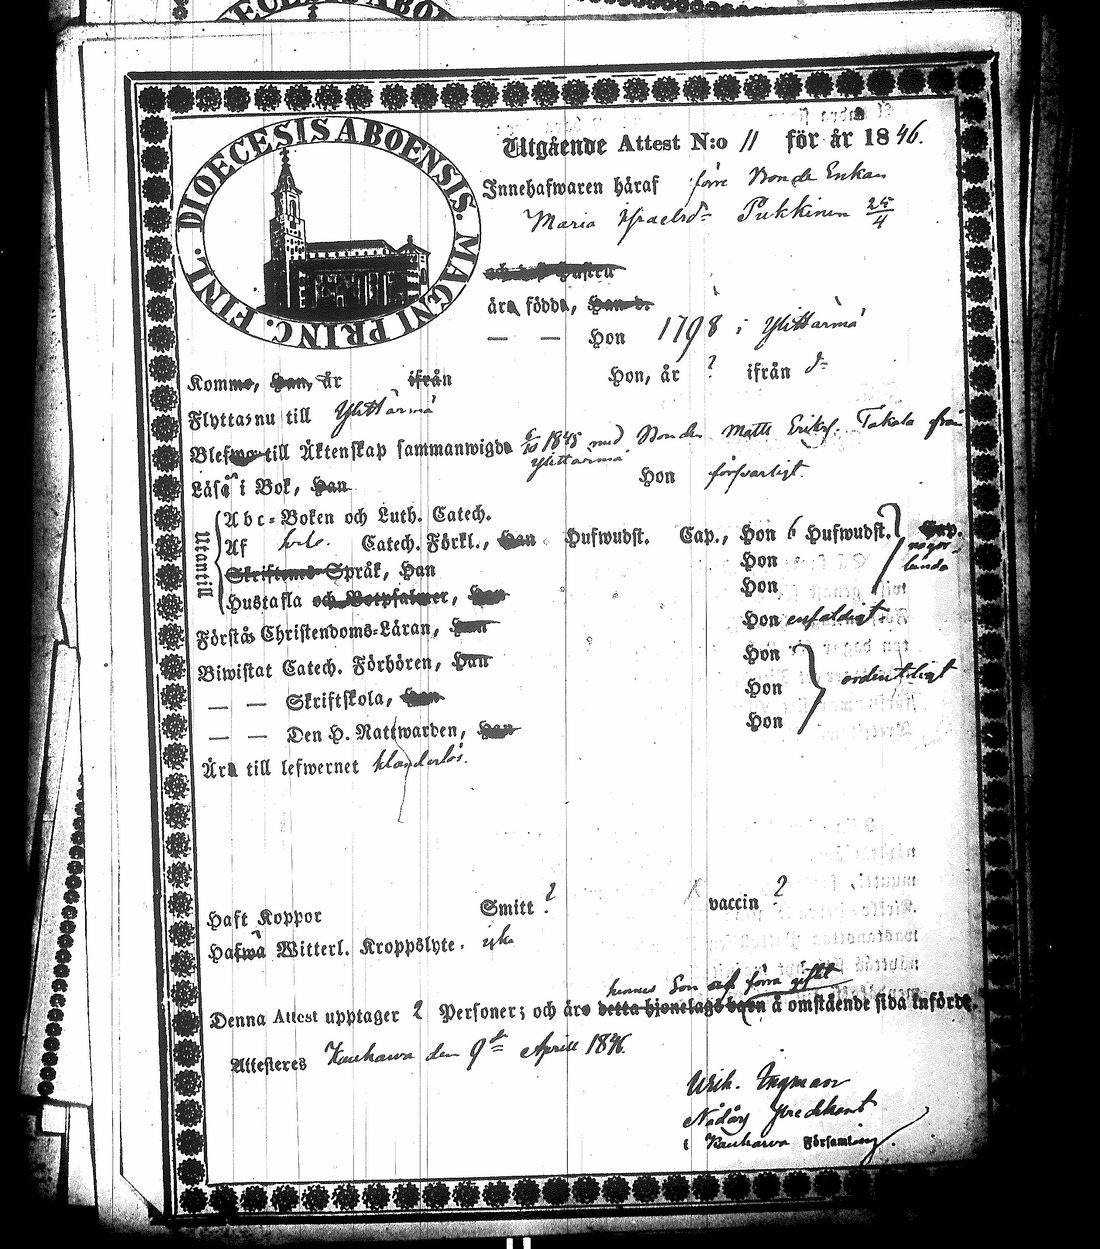 DIOECESIS ABOENSIS. MAGNI PRINC. FINL.
Utgående Attest N:o 11 för år 1846.
Innehafwaren häraf förre Bonde Enkan
Maria Israelsdr Pukkinen 25/4
och dess Hustru
ära födda, Han d.
— — Hon 1798 i Ylittärmä
Komme, Han, år ifrån Hon, år ? ifrån do
Flyttas nu till Ylittärmä
Blefwo till Äktenskap sammanwigde 1845 med Bonden Matts Eriks. Takala från
Ylittärmä
Läsa i Bok, Han Hon försvarligt.
Utantill
Abc-Boken och Luth. Catech.
Af Catech. Förkl., Han Hufwudst. Cap., Hon 6 Hufwudst. Cap.
Skriftens Språk, Han Hon
Hustafla och Botpsalmer, Han Hon
någor-
lunda
Förstå Christendoms-Läran, Han Hon enfaldigt
Biwistat Catech. Förhören, Han Hon
— — Skriftskola, Han Hon ordentligt
— — Den H. Nattwarden, Han Hon
Ära till lefwernet klanderlös.
Haft Koppor Smitt ? vaccin ?
Hafwa Witterl. Kroppslyte. icke
hennes Son
Denna Attest upptager 2 Personer; och äro detta hjonelags barn å omstående sida införde.
Attesteres Kauhawa den 9de Aprill 1846.
Ingman
Nådårs Predikant
i Kauhawa Församling.